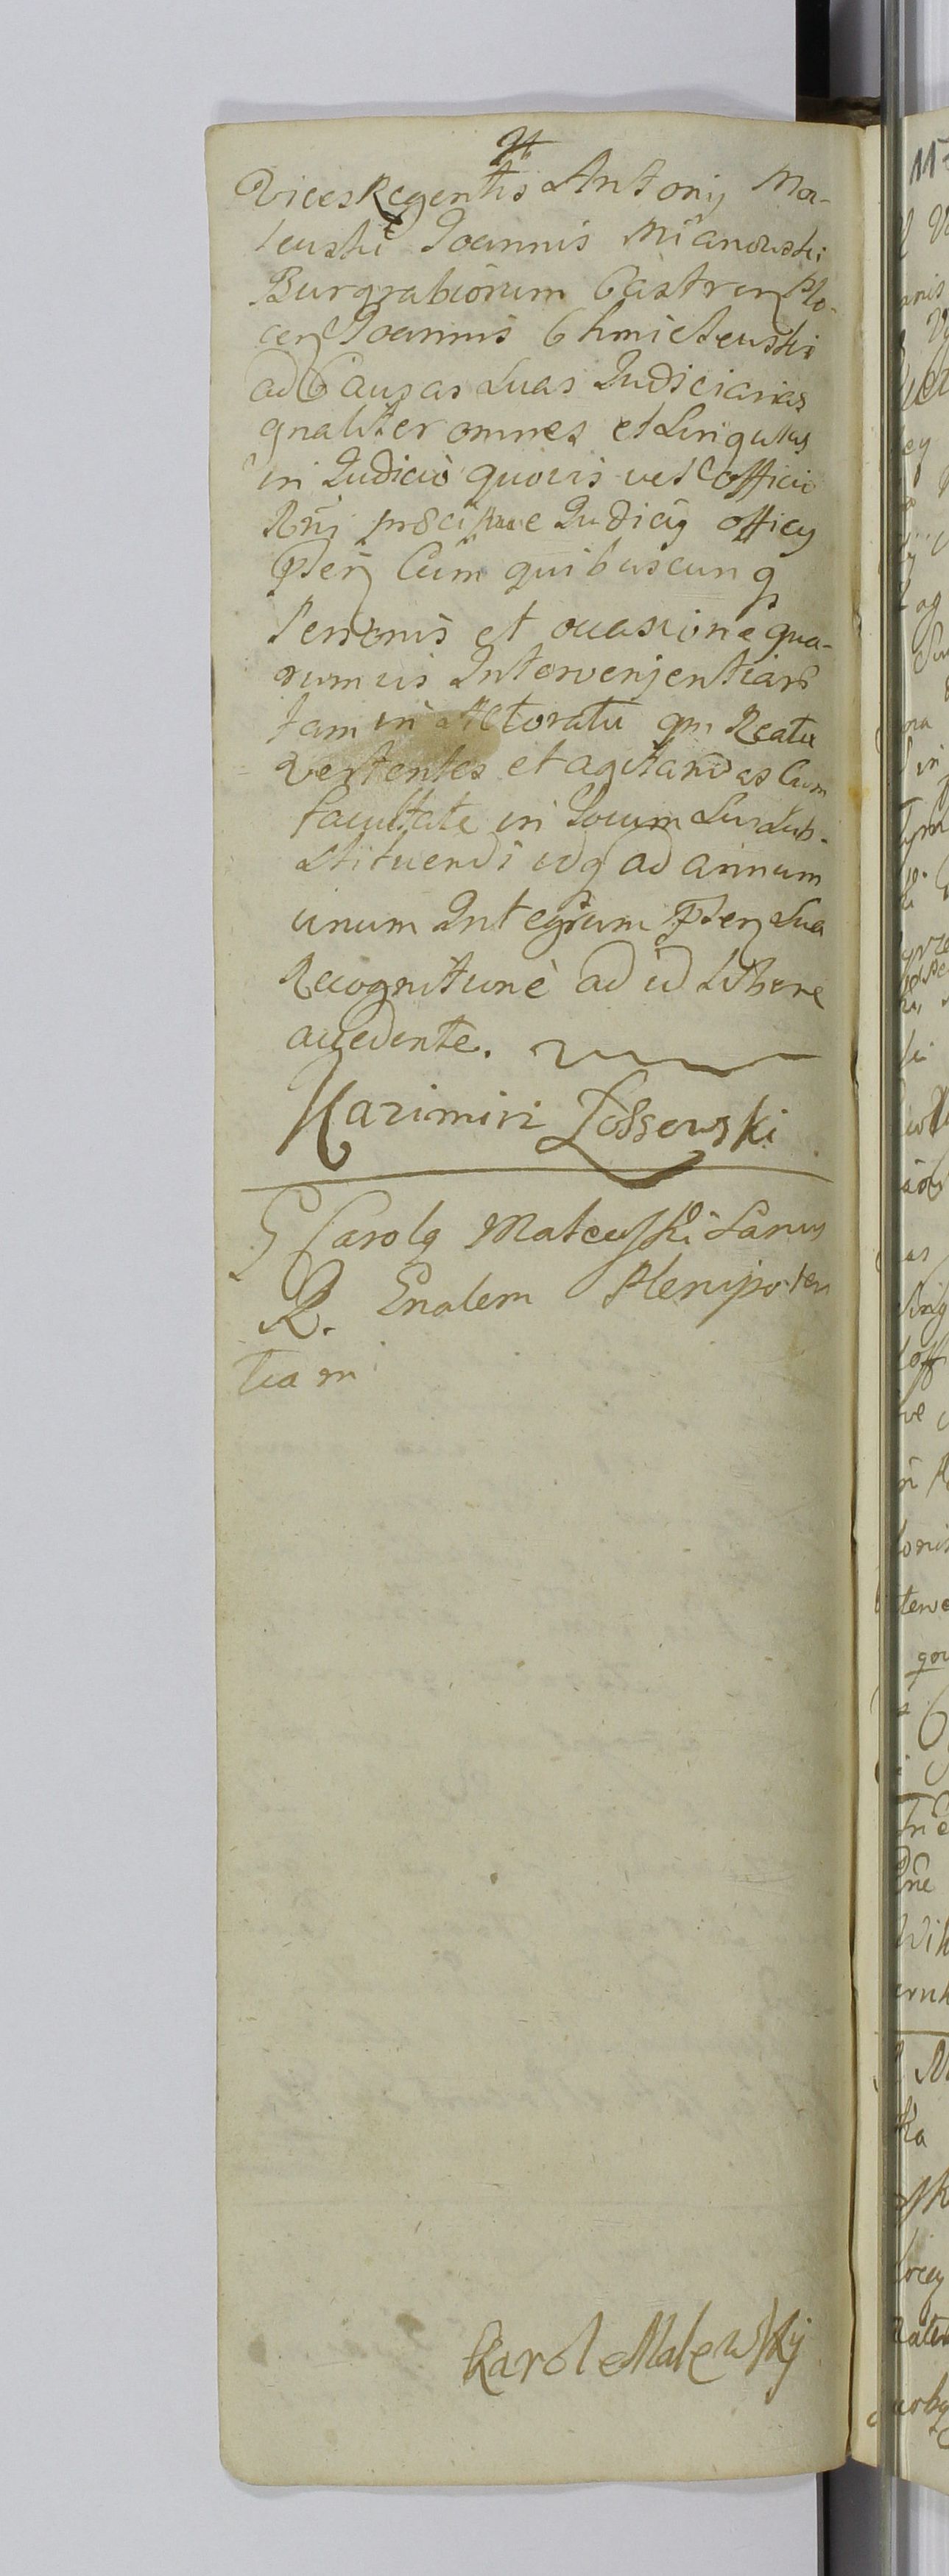 Vices Regentis Antonij Ma-
leuski Joannis Mianowski
Burgrabiorum Castren Plo-
cen Joannis Chmieleuski
ad Causas Suas Judiciarias
gnaliter omnes et Singulas
in Judicio quovis vel Officio
Rni precipue Judicij officij
Pten Cum quibuscunq
Personis et occasione qua-
rumvis Intervenientiarum
tam in Actoratu qm Reatu
vertentes et agitandas Cum
facultate in Locum Sui Sub-
stituendi idq ad annum
unum Integrum Pten Sua
Recognitione ad id Libere
accedente.
Kazimirz Lossowski
G Carolg Maleuski Sanus
R. Gnalem Plenipoten
tiam
Karol Malewskij